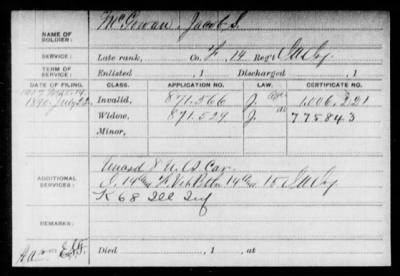 McGowan, Jacob S.
NAME OF SOLDIER:
SERVICE: Late rank, Co. F, 14 Reg't Ia Inf
TERM OF SERVICE: Enlisted , 1 Discharged , 1
DATE OF FILING. CLASS. APPLICATION NO. LAW. CERTIFICATE NO.
Invalid, 871.566 J. 1,006.221
1890. July 22 Widow, 871.529 J. 775843
Minor,
ADDITIONAL SERVICES: Unasd 8 Cav.
I, 14 F Bttn 14 15 Ia Inf
K 68 Ill Inf
REMARKS:
Died , 1 , at